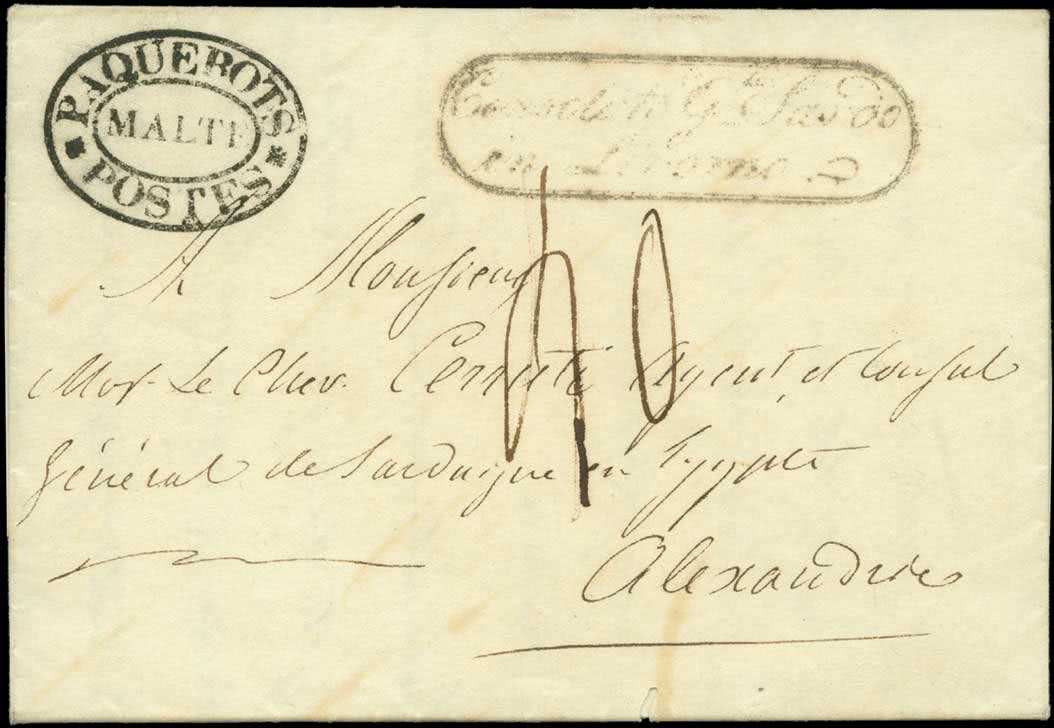 PAQUEBOTS
MALTE
POSTES
Consolato Gle Sardo
in Livorno
A Monsieur
40
Monsr Le Chevr Cerruti Agent et Consul
Général de Sardaigne en Egypte
Alexandrie